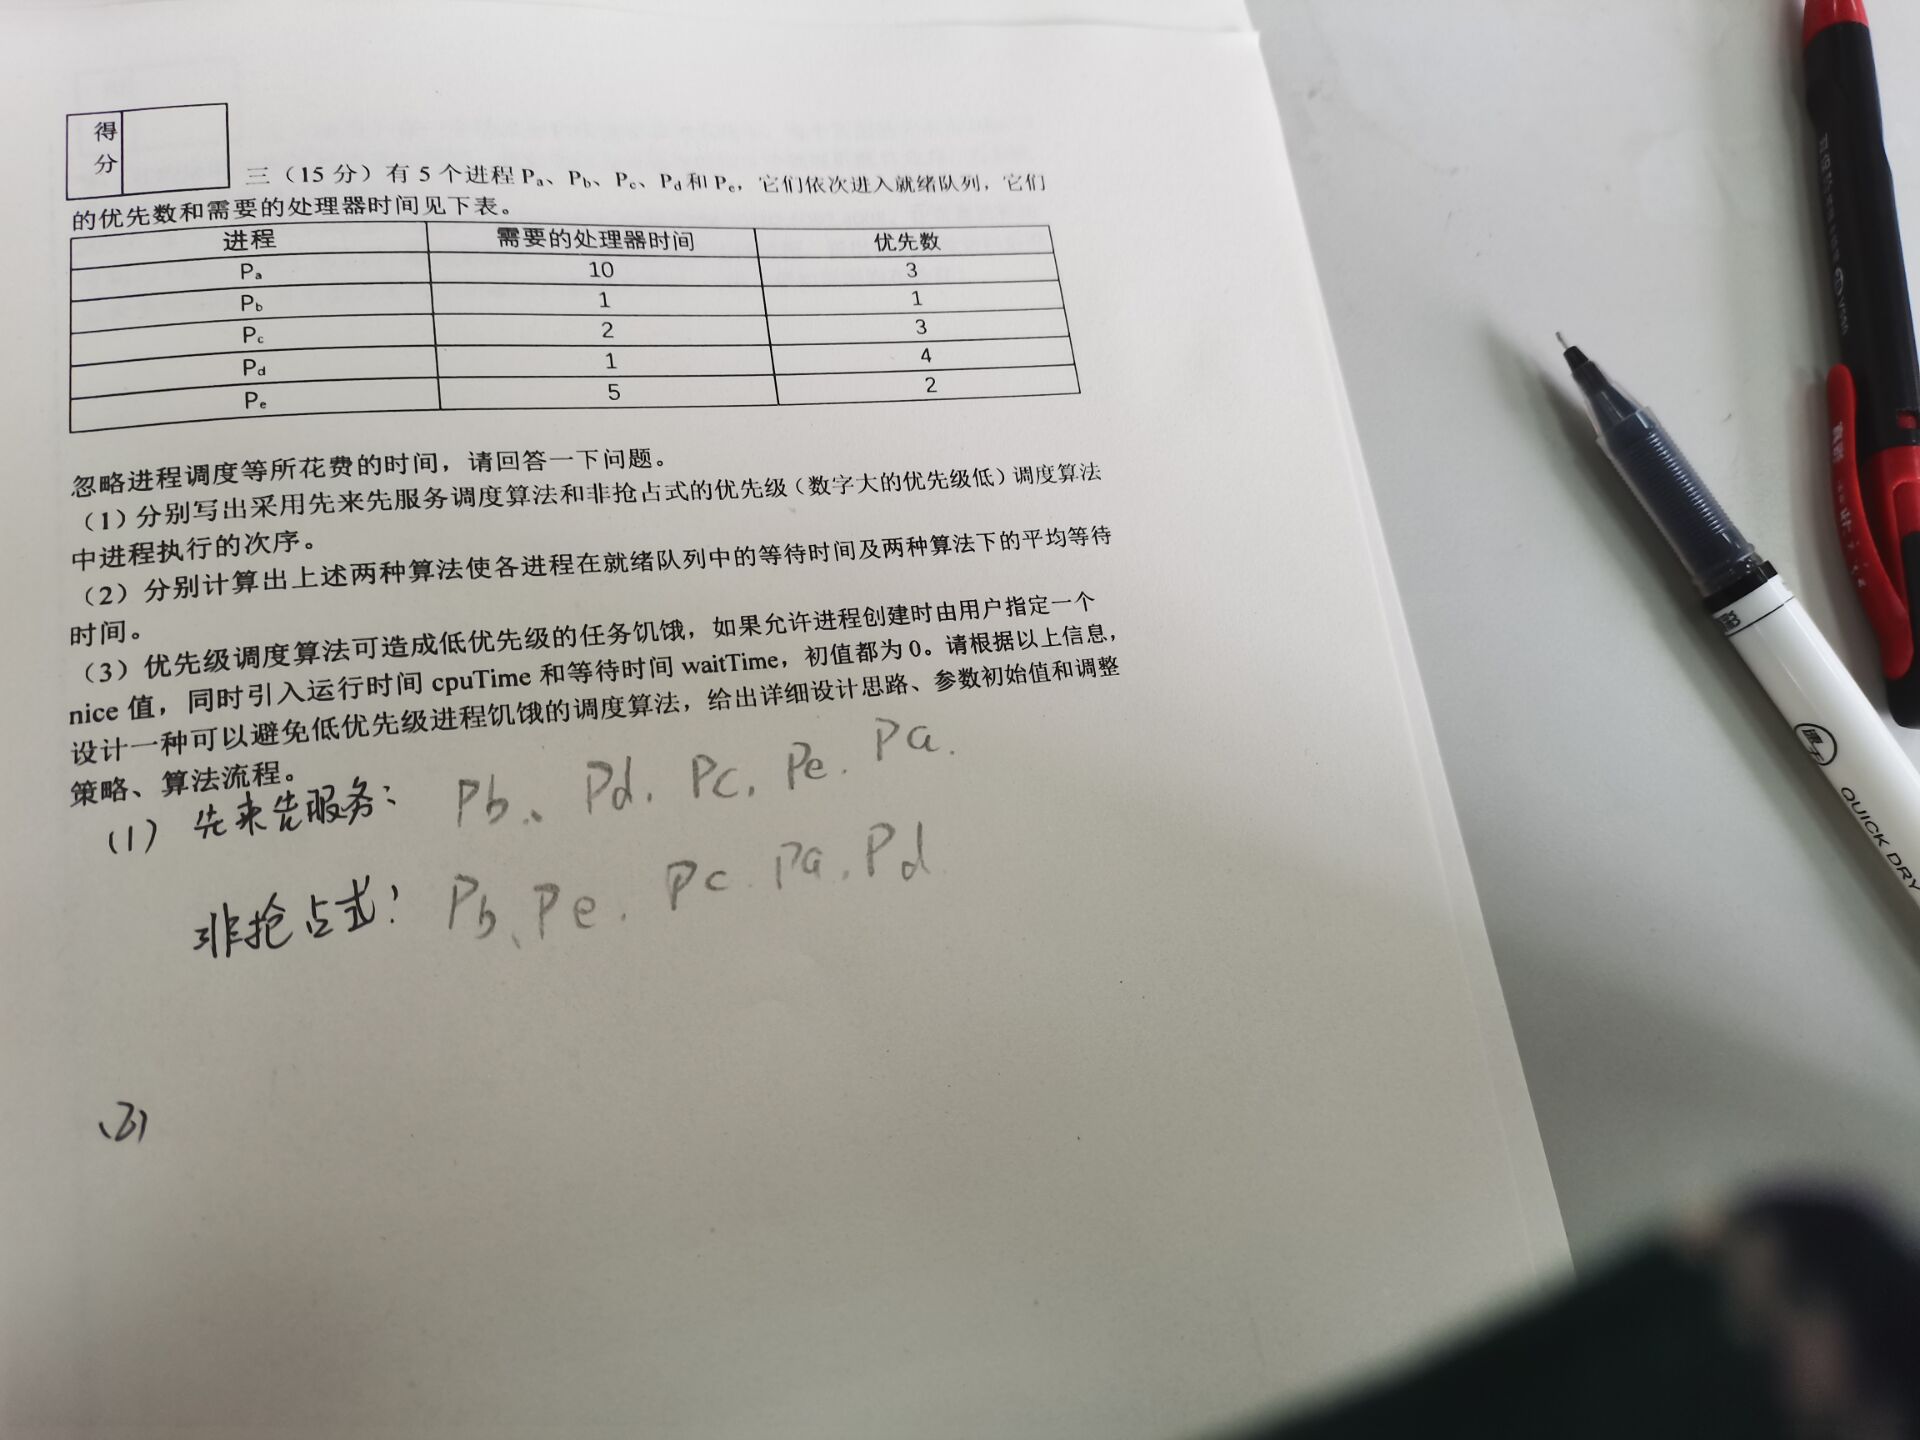 得分
三（15 分）有 5 个进程 Pa、Pb、Pc、Pd和 Pe，它们依次进入就绪队列，它们
的优先数和需要的处理器时间见下表。
进程 需要的处理器时间 优先数
Pa 10 3
Pb 1 1
Pc 2 3
Pd 1 4
Pe 5 2
忽略进程调度等所花费的时间，请回答一下问题。
（1）分别写出采用先来先服务调度算法和非抢占式的优先级（数字大的优先级低）调度算法
中进程执行的次序。
（2）分别计算出上述两种算法使各进程在就绪队列中的等待时间及两种算法下的平均等待
时间。
（3）优先级调度算法可造成低优先级的任务饥饿，如果允许进程创建时由用户指定一个
nice 值，同时引入运行时间 cpuTime 和等待时间 waitTime，初值都为 0。请根据以上信息，
设计一种可以避免低优先级进程饥饿的调度算法，给出详细设计思路、参数初始值和调整
策略、算法流程。
(1) 先来先服务： Pb、Pd. Pc. Pe. Pa.
非抢占式： Pb、Pe. Pc. Pa. Pd.
QUICK DRY